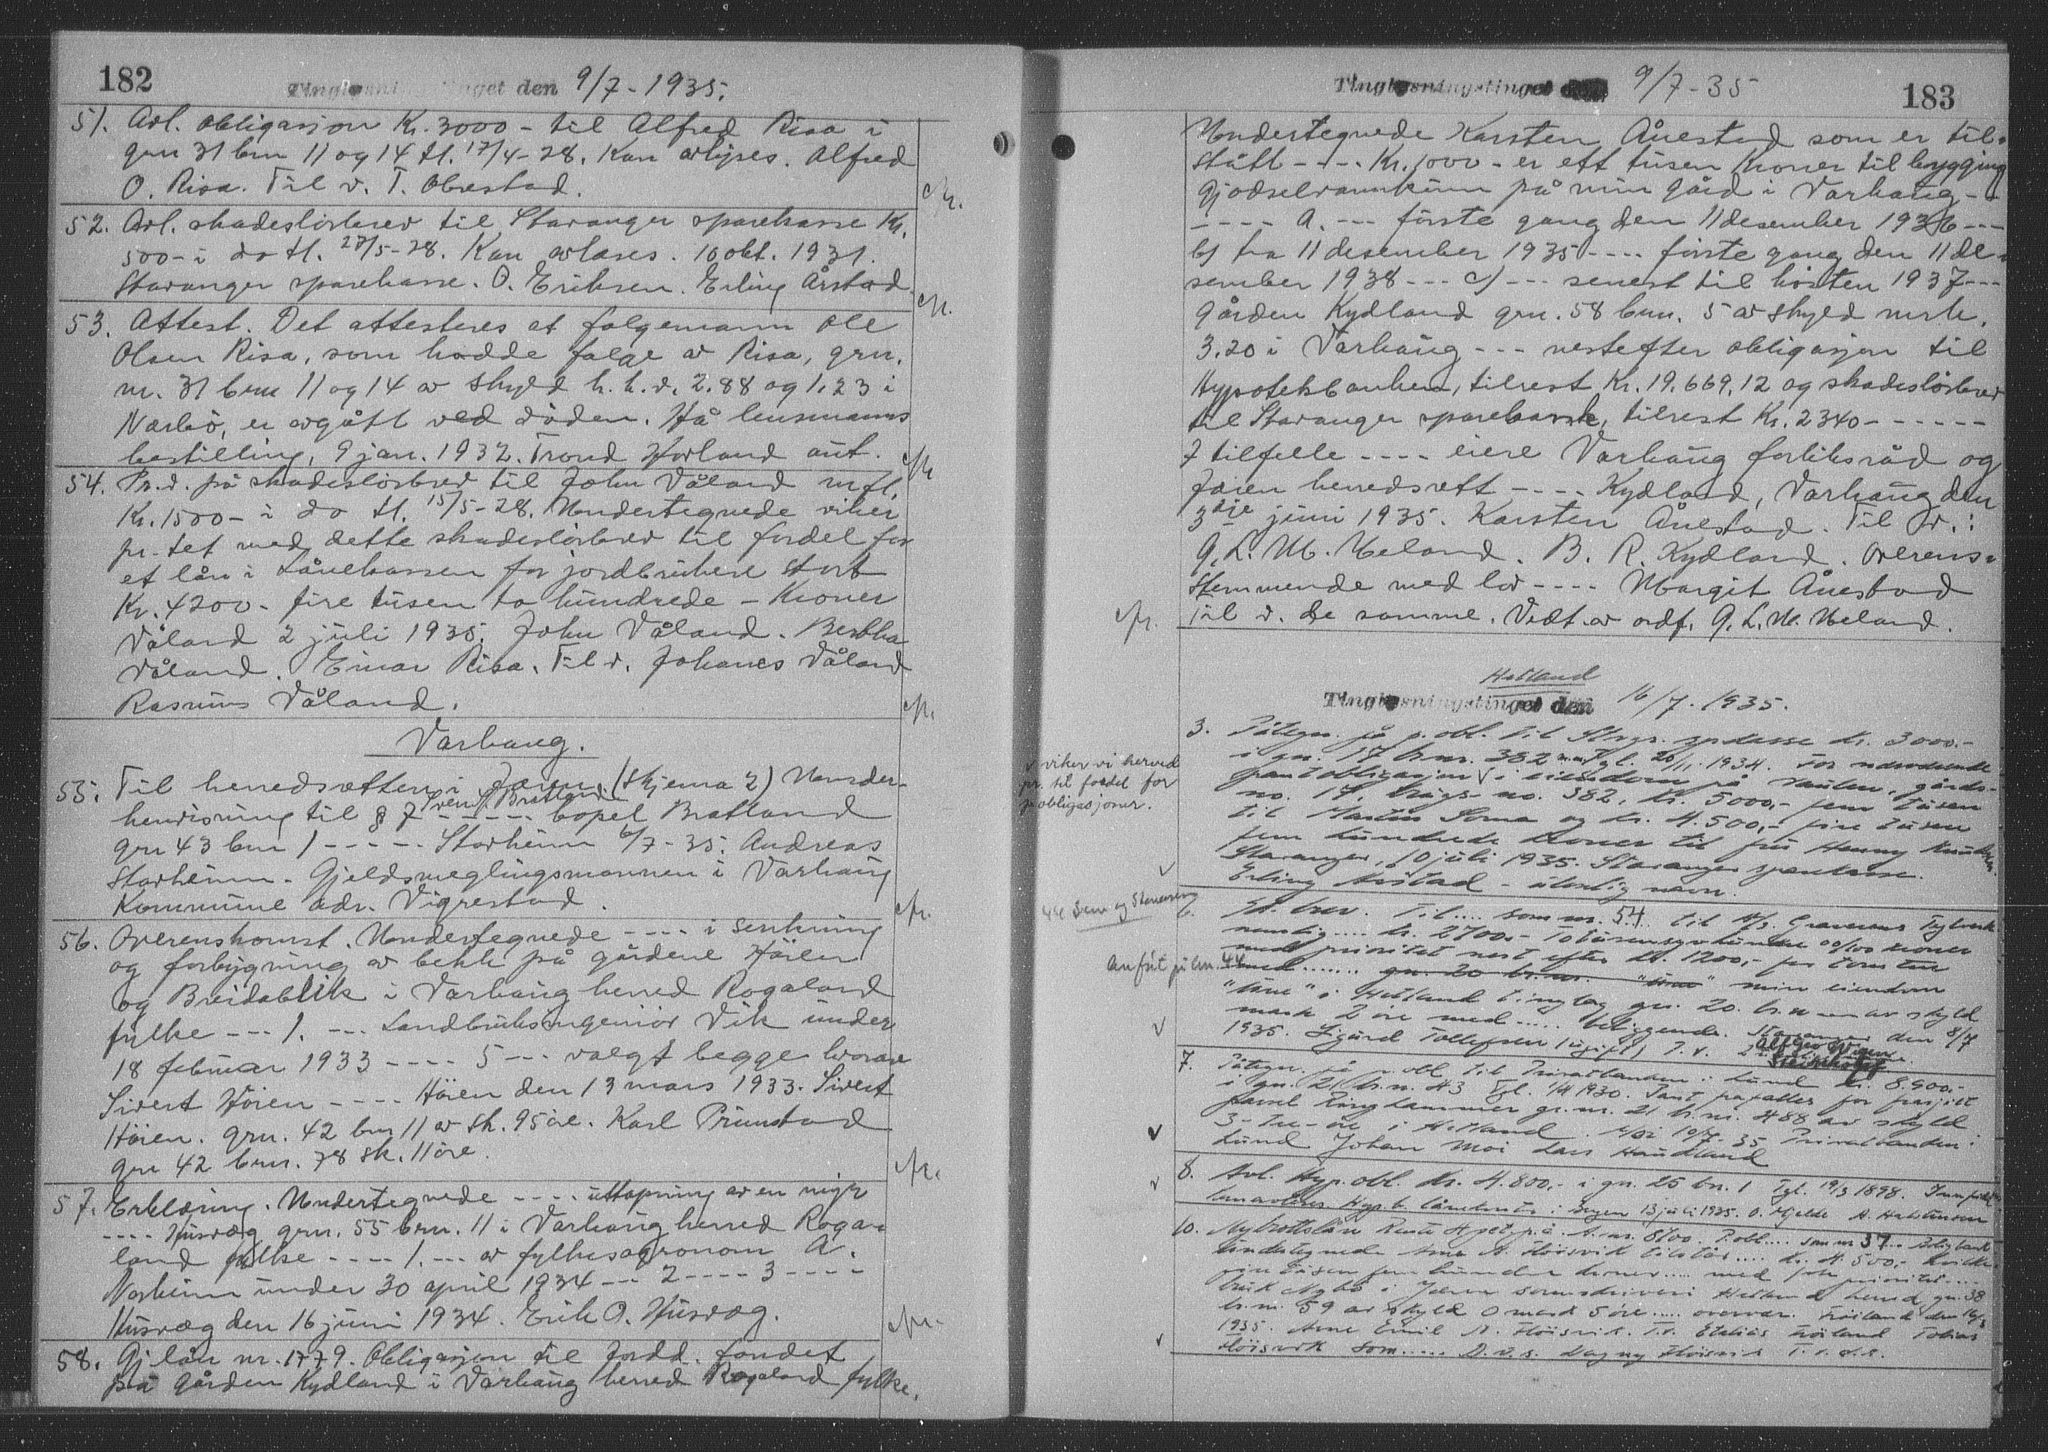 182
Tinglysningstinget den 9/7-1935.
51. Avl. obligasjon Kr. 3000 - til Alfred Risa i
grn 31 brn 11 og 14 tl. 17/4-28. Kan avlyses. Alfred
O. Risa. Til v. T. Obrestad.
52. Avl. skadeslösbrev til Stavanger sparekasse Kr.
500 - i do tl. 27/5-28. Kan avlæses. 16 okt. 1931.
Stavanger sparekasse. O. Eriksen. Erling Årstad.
53. Attest. Det attesteres at folgemann Ole
Olsen Risa, som hadde folge av Risa, grn.
nr. 31 brn 11 og 14 av skyld h.h.v. 2.88 og 1.23 i
Nærbö, er avgått ved döden. Hå lensmanns
bestilling, 9 jan. 1932. Trond Horland aut.
54. Pr.v. på skadeslösbrev til John Våland mfl.
Kr. 1500 - i do tl. 15/5-28. Undertegnede viker
pr-tet med dette skadeslösbrev til fordel for
et lån i Lånekassen for jordbrukere stort
Kr. 4200 - fire tusen to hundrede - Kroner
Våland 2 juli 1935. John Våland. Bertha
Våland. Einar Risa. Til v. Johanes Våland
Rasmus Våland.
Varhaug.
55. Til herredsretten i Jæren (skjema 2) Under-
henvisning til § 7 - - - - bopel Bratland
grn 43 brn 1 - - - - Storheim 6/7-35. Andreas
Storheim - Gjeldsmeglingsmannen i Varhaug
Kommune adr. Vigrestad.
56. Overenskomst. Undertegnede - - - - i senkning
og forbygning av bekk på gårdene Höien
og Breidablik i Varhaug herred Rogaland
fylke - - - 1. - - - Landbruksingeniör Vik under
18 februar 1933 - - - - 5 - - - valgt begge hvorav
Sivert Höien - - - - Höien den 13 mars 1933. Sivert
Höien. grn. 42 brn 11 av sk. 95 öre. Karl Prumstad
grn 42 brn. 78 sk. 11 öre.
57. Erklæring. Undertegnede - - - - uttapning av en myr
- - - - Husvæg grn. 55 brn. 11 i Varhaug herred Roga-
land fylke - - - - 1. - - - av fylkesagronom A.
Norheim under 30 april 1934 - - - 2 - - - - 3 - - - -
Husvæg den 16 juni 1934. Erik O. Husvæg.
58. Gj. lån nr. 1779. Obligasjon til Jordd. fondet
på gården Kydland i Varhaug herred Rogaland fylke.
183
Tinglysningstinget den 9/7-35
Undertegnede Karsten Ånestad som er til-
stått - - - - Kr. 1000 - er ett tusen Kroner til bygging
Gjödselvannkum på min gård i Varhaug - -
- - - - A. - - - förste gang den 11 desember 1936 - - -
b) fra 11 desember 1935 - - - - förste gang den 11 de-
sember 1938 - - - c) - - - senest til hösten 1937 - - -
gården Kydland grn. 58 brn. 5 av skyld mrk.
3.20 i Varhaug - - - nestefter obligasjon til
Hypotekbanken, tilrest Kr. 19.669,12 og skadeslösbrev
til Stavanger sparekasse, tilrest Kr. 2340 - - - - - -
I tilfelle - - - - eiere Varhaug forliksråd og
Jæren herredsrett - - - - Kydland, Varhaug den
3dje juni 1935. Karsten Ånestad. Til v.:
G. L. M. Meland. B. R. Kydland. Overens-
stemmende med lov - - - - Margit Ånestad
Til v. de samme. Vedt. av ordf. G. L. M. Meland.
Hetland
Tinglysningstinget den 16/7-1935.
3. Påtegn. på p. obl. til Stvgr. sp.kasse kr. 3000.-
i gn. 17 br.nr. 382 m.m. Tgl. 20/11 1934. For nærværende
pantobligasjon √ i eiendom på , gårds-
no. 17, bruks-no. 382, kr. 5000,- fem tusen
til Martin Sma og kr. 4.500,- fire tusen
fem hundrede kroner til fru Henny Knudsen
Stavanger, 10 juli 1935. Stavanger sparekasse.
Erling Årstad - utydelig navn.
√ viker vi herved
pr. til fordel for
p.obligasjoner.
6. Sk. brev. Til .... som nr. 54 til A/S Graverens Teglverk
nemlig .... kr. 2700,- Totusensyvhundre 00/100 kroner
med prioritet nest efter kr. 1200,-
med ....... gn. 20 br.nr. min eiendom
i Hetland tinglag gn. 20. br.nr av skyld
mark 2 öre med ..... beliggende. Stavanger den 8/7
1935. Sigurd Tollefsen (ugift) T.v.
Anfört på nr. 44
7. Påtegn. på p. obl. til Privatbanken i Lund kr. 8.900,-
i gn. 21 br.n. 43 Tgl. 1/4 1930. Pant frafalles for frasjilt
parsel Ringhammer gr.nr. 21 br.nr. 488 av skyld
3-tre-öre i Hetland. Moi 10/7-35 Privatbanken i
Lund Johan Moi Lars Haukland
8. Avl. Hyp.obl. kr. 4.800,- i gn. 25 bn. 1 Tgl. 19/3 1898.
kan avlyses. Hyp.b. lånekonto i Bergen 13 juli 1935. O. Mjelde A. Halstensen
10. Nybrottslån Rente 4 pct. p.a. L.nr. 8100. P.obl .... som nr 37 ... Bolig bank
Undertegnede Arne A. Höisvik tilstår .... kr. 4.500,-
fire tusen fem hundre kroner .... med 1ste prioritet ....
bruk Nybö i Jæren sorenskriveri Hetland herred gn. 38
br.nr. 59 av skyld 0 mark 5 öre .... overvær.
1935. Arne Emil A. Höisvik. T.v. Tobias
Höisvik som ..... D.v.s. Dagny Höisvik T.v. d.s.